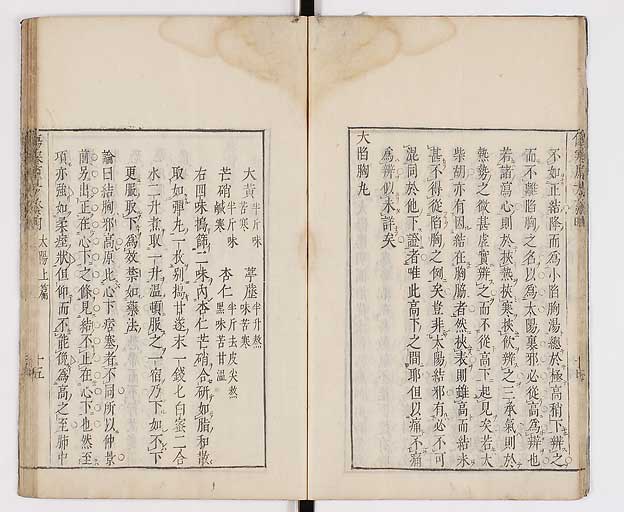 不如正結降而為小陷胸湯總於極高稍下辨之
而不離陷胸之名以為太陽裏邪必從高為辨也
若諸瀉心則於挾熱挾寒挾飲辨之三承氣則於
熱勢之微甚虛實辨之而不從高下起見矣若大
柴胡亦有因結在胸脇者然挾表則雖高而結未
甚不得從陷胸之例矣豈非太陽結邪有必不可
混同於他下證者唯此高下之間耶但以痛不痛
為辨似未詳矣
大陷胸丸
大黃 半斤味苦寒 葶藶 半升熬味苦寒
芒硝 半斤味鹹寒 杏仁 半斤去皮尖熬黑味苦甘溫
右四味搗篩二味內杏仁芒硝合研如脂和散
取如彈丸一枚別搗甘遂末一錢匕白蜜二合
水二升煮取一升溫頓服之一宿乃下如不下
更服取下為效禁如藥法
論曰結胸邪高原此心下痞塞者不同所以仲景
前另出正在心下之條見結不正在心下也然至
項亦強如柔痙狀但仰而不能俛為高之至肺中
太陽上篇
十五